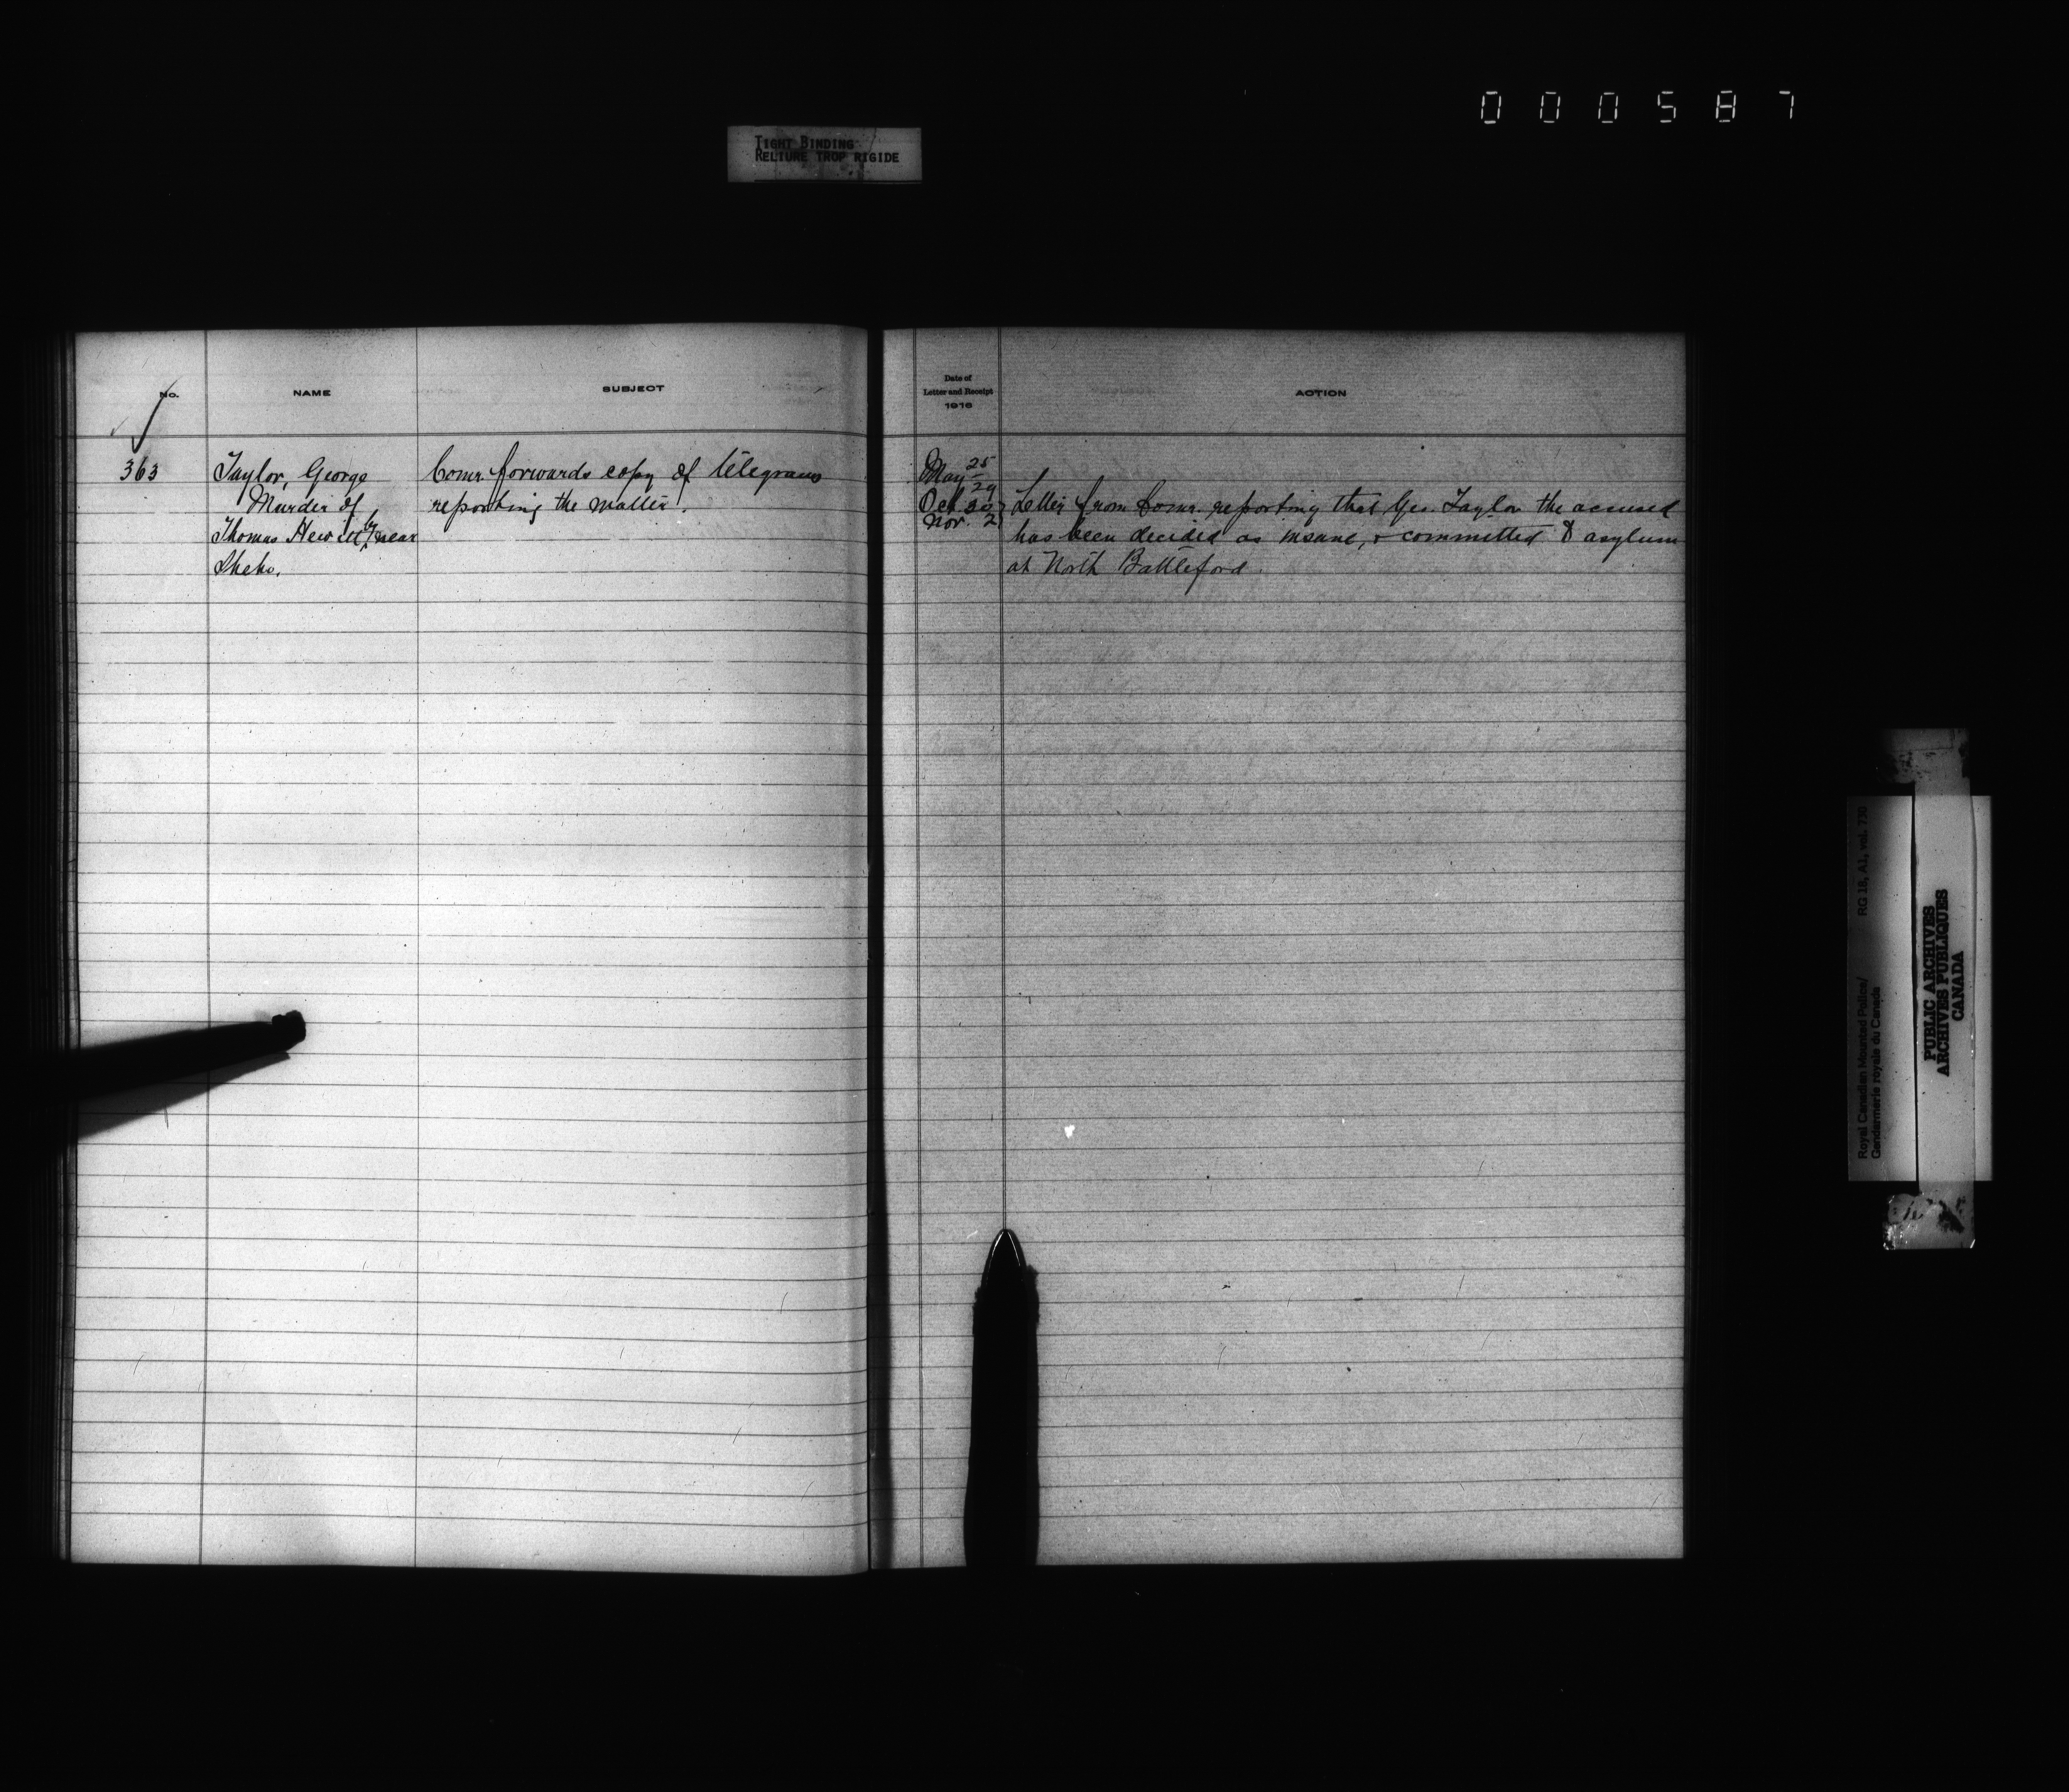 000587
TIGHT BINDING
RELIURE TROP RIGIDE
No.
NAME
SUBJECT
363
Taylor, George
Murder of
Thomas Hewitt by near
Sheho.
Comr. forwards copy of telegram
reporting the matter.
Date of
Letter and Receipt
1916
ACTION
May 25
29
Oct. 30
Nov. 2
Letter from Comr. reporting that Geo. Taylor the accused
has been decided as insane, & committed to asylum
at North Battleford.
Royal Canadian Mounted Police/ RG 18, A1, vol. 730
Gendarmerie royale du Canada
PUBLIC ARCHIVES
ARCHIVES PUBLIQUES
CANADA